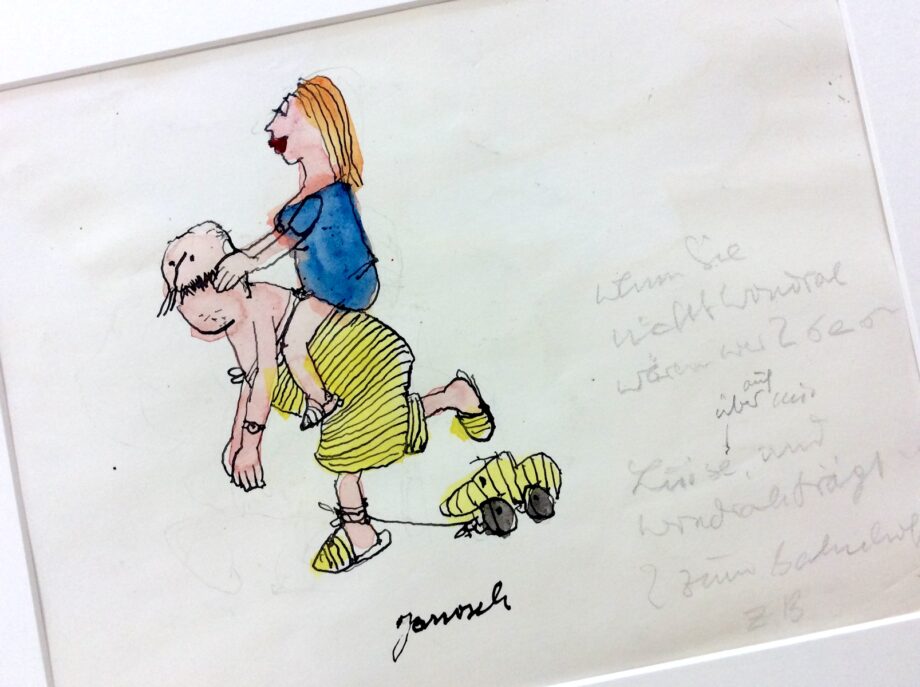 wenn Sie
nicht Wondrak
wären wer
auf
über
Luise, und
Wondrak trägt
zum Bahnhof
z B
Janosch